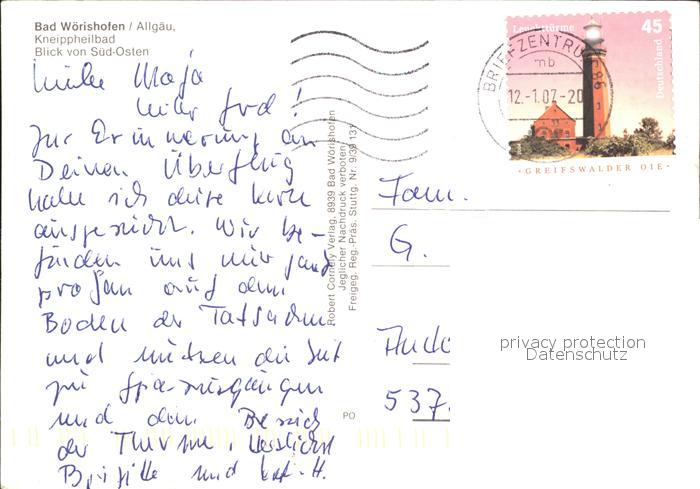 Bad Wörishofen / Allgäu,
Kneippheilbad
Blick von Süd-Osten
Liebe Maja
lieber Gerd!
Zur Erinnerung an
Deinen Überflug
habe ich diese Karte
ausgesucht. Wir be-
finden uns nur ganz
profan auf dem
Boden der Tatsachen
und nützen die Zeit
zu Spaziergängen
und dem Besuch
der Therme. Herzlichst
Brigitte und Karl-H.
Robert Cornely Verlag, 8939 Bad Wörishofen
Jeglicher Nachdruck verboten
Freigeg. Reg.-Präs. Stuttg. Nr. 9/39 131
PO
Leuchttürme
45
Deutschland
GREIFSWALDER OIE
BRIEFZENTRUM 86
mb
12.-1.07-20
Fam.
G.
537
privacy protection
Datenschutz